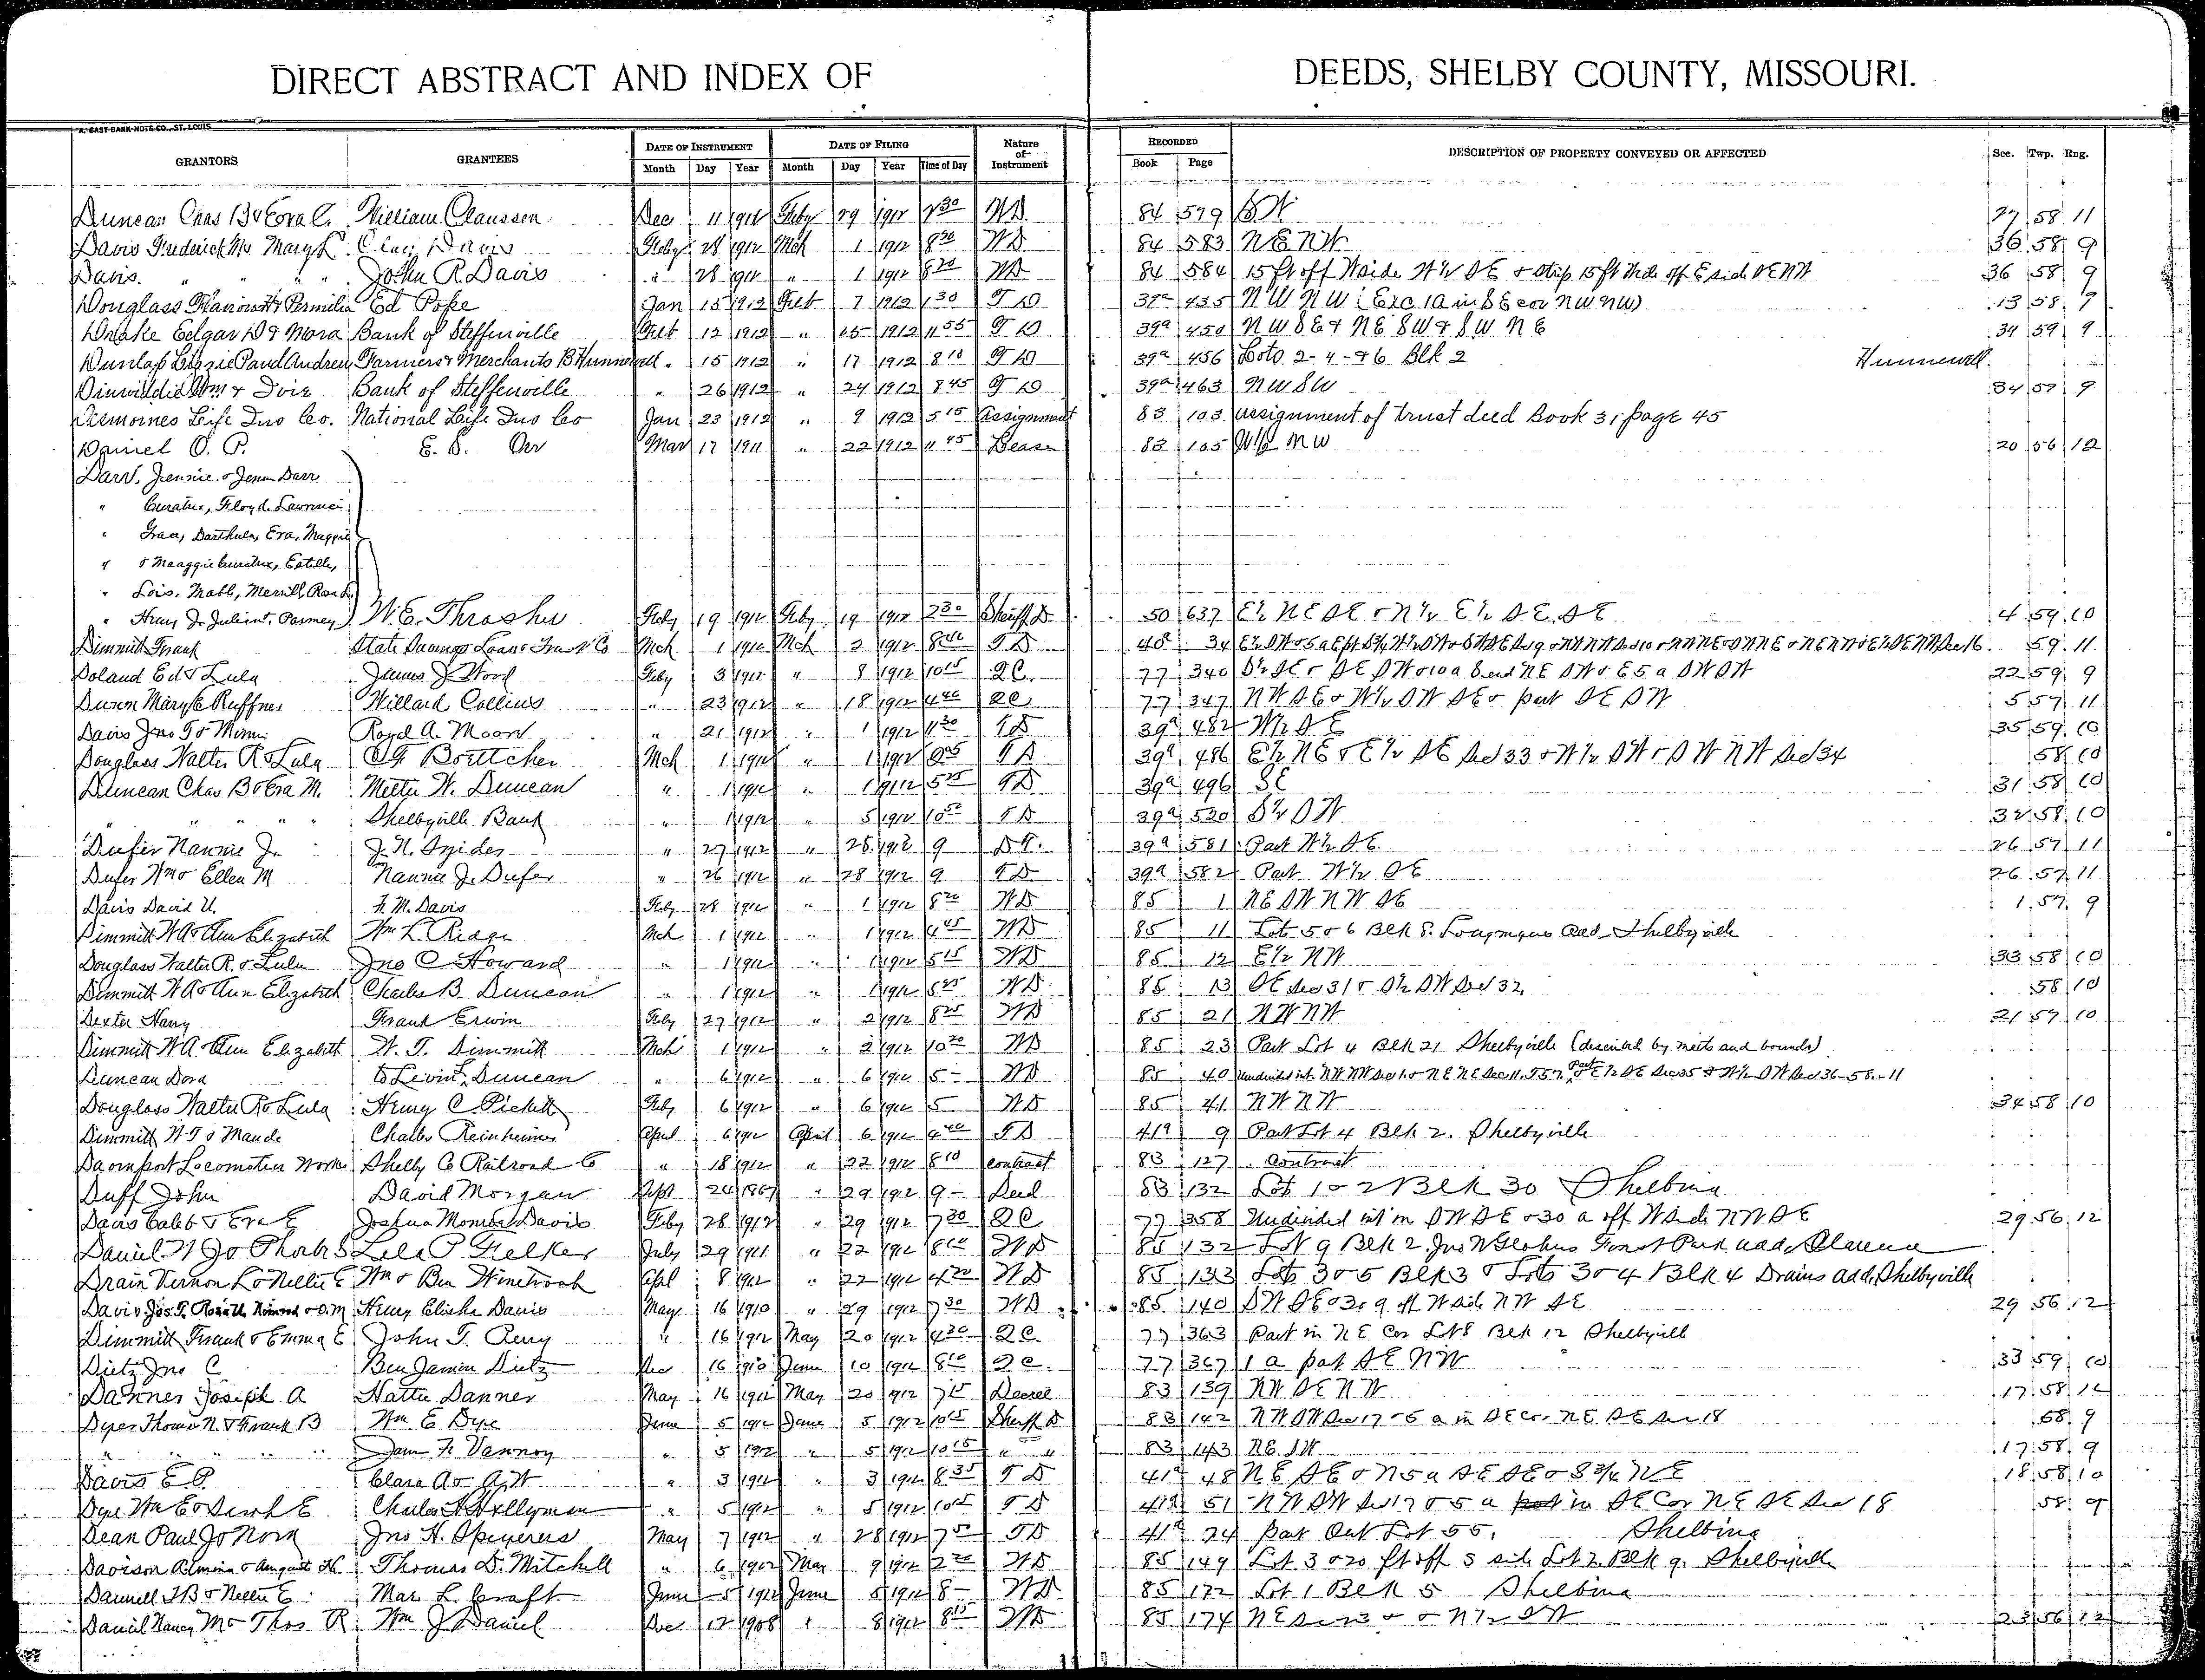 DIRECT ABSTRACT AND INDEX OF DEEDS, SHELBY COUNTY, MISSOURI.
A. GAST BANK NOTE CO., ST. LOUIS
GRANTORS GRANTEES DATE OF INSTRUMENT DATE OF FILING Nature of Instrument RECORDED DESCRIPTION OF PROPERTY CONVEYED OR AFFECTED Sec. Twp. Rng.
Month Day Year Month Day Year Time of Day Book Page
Duncan Chas B & Cora C. William Claussen Dec 11 1911 Feby 29 1912 2 30 WD 84 579 27 58 11
Davis Frederick M & Mary L. Clay Davis Feby 28 1912 Mch 1 1912 8 20 WD 84 583 NE NW 36 58 9
Davis " " " John R. Davis " 28 1912 " 1 1912 8 20 WD 84 584 15 ft off W side W½ SE & strip 15 ft wide off E side SE NW 36 58 9
Douglass & Permilia Ed Pope Jan 15 1912 Feb 7 1912 1 30 T D 39a 435 NW NW (Exc 1a in SE cor NW NW) 13 58 9
Drake Edgar D & Nora Bank of Steffenville Feb 12 1912 " 15 1912 11 55 T D 39a 450 NW SE & NE SW & SW NE 34 59 9
Dunlap Lizzie P and Andrew Farmers & Merchants B Hunnewell " 15 1912 " 17 1912 8 10 T D 39a 456 Lots 2-4-&6 Blk 2 Hunnewell
Dinwiddie Wm & Dovie Bank of Steffenville " 26 1912 " 24 1912 8 45 T D 39a 463 NW SW 34 59 9
Desmoines Life Ins Co. National Life Ins Co Jan 23 1912 " 9 1912 5 15 Assignment 83 103 assignment of trust deed Book 31, page 45
Daniel O. P. E. S. Orr Mar 17 1911 " 22 1912 11 45 Lease 83 105 W½ NW 20 56 12
Darr, Jennie & Jennie Darr
" Curatrix, Floyd, Lawrence
" Grace, Darthula, Era, Maggie
" & Maaggie Curatrix, Estelle,
" Lois, Mabl, Merrill,
" Henry J. W. E. Thrasher Feby 19 1912 Feby 19 1912 2 30 Sheriff D 50 637 E½ NE SE & N½ E½ SE SE 4 59 10
Dimmitt Frank State Savings Loan & Trust Co Mch 1 1912 Mch 2 1912 8 40 T D 40a 34 59 11
Doland Ed & Lula James J. Wood Feby 3 1912 " 8 1912 10 15 QC. 77 340 S½ SE & SE SW & 10 a S end NE SW & E 5 a SW SW 22 59 9
Dunn Mary C Ruffner Willard Collins " 23 1912 " 18 1912 4 40 QC 77 347 NW SE & W½ SW SE & part SE SW 5 57 11
Davis Jno T & Minnie Royal A. Moore " 21 1912 " 1 1912 11 30 T D 39a 482 W½ SE 35 59 10
Douglass Walter R & Lula C F Boettcher Mch 1 1912 " 1 1912 9 05 T D 39a 486 E½ NE & E½ SE Sec 33 & W½ SW & SW NW Sec 34 58 10
Duncan Chas B & Cora M. Mettie W. Duncan " 1 1912 " 1 1912 5 25 T D 39a 496 SE 31 58 10
" " " " Shelbyville Bank " 1 1912 " 5 1912 10 50 T D 39a 520 S½ SW 32 58 10
Dufer Nannie J. J. N. Snider " 27 1912 " 28 1912 9 D T. 39a 581 Part W½ SE 26 57 11
Dufer Wm & Ellen M Nannie J. Dufer " 26 1912 " 28 1912 9 T D 39a 582 Part W½ SE 26 57 11
Davis David U. F. M. Davis Feby 28 1912 " 1 1912 8 20 WD 85 1 NE SW NW SE 1 57 9
Dimmitt W A & Ann Elizabeth Wm L. Ridge Mch 1 1912 " 1 1912 4 45 WD 85 11 Lots 5 & 6 Blk 8 Add Shelbyville
Douglass Walter R. & Lula Jno C Howard " 1 1912 " 1 1912 5 15 WD 85 12 E½ NW 33 58 10
Dimmitt W A & Ann Elizabeth Charles B. Duncan " 1 1912 " 1 1912 5 25 WD 85 13 SE Sec 31 & S½ SW Sec 32 58 10
Dexter Harry Frank Erwin Feby 27 1912 " 2 1912 8 25 WD 85 21 NW NW 21 57 10
Dimmitt W A. & Ann Elizabeth W. T. Dimmitt Mch 1 1912 " 2 1912 10 20 WD 85 23 Part Lot 4 Blk 21 Shelbyville (described by meets and bounds)
Duncan Dora to Levin L. Duncan " 6 1912 " 6 1912 5 - WD 85 40 Undivided int. NW NW Sec 1 & NE NE Sec 11, T 57, Part E½ SE Sec 35 & W½ SW Sec 36-58-11
Douglass Walter R & Lula Henry C Pickett Feby 6 1912 " 6 1912 5 WD 85 41 NW NW 34 58 10
Dimmitt W T & Maude Charles Reinheimer April 6 1912 April 6 1912 4 40 T D 41a 9 Part Lot 4 Blk 2. Shelbyville
Davenport Locomotive Works Shelby Co Railroad Co " 18 1912 " 22 1912 8 10 contract 83 127 Contract
Duff John David Morgan Sept 24 1867 " 29 1912 9 - Deed 83 132 Lots 1 & 2 Blk 30 Shelbina
Davis Caleb & Eva E Joshua Monroe Davis Feby 28 1912 " 29 1912 7 30 QC 77 358 Undivided int in SW SE & 30 a off W side NW SE 29 56 12
Daniel W J & Lela P Fielker July 29 1911 " 22 1912 8 10 WD 85 132 Lot 9 Blk 2 Jno Forest Park add, Clarence
Drain Vernon L & Nellie E Wm & Ben Winetrook April 8 1912 " 22 1912 4 20 WD 85 133 Lots 3 & 5 Blk 3 & Lots 3 & 4 Blk 4 Drains add, Shelbyville
Davis Jos. T. Henry Elisha Davis May 16 1910 " 29 1912 7 30 WD 85 140 SW SE & 30 a off W side NW SE 29 56 12
Dimmitt Frank & Emma E John T. Perry " 16 1912 May 20 1912 4 30 QC. 77 363 Part in NE Cor Lot 8 Blk 12 Shelbyville
Dietz Jno C Ben Jamin Dietz Dec 16 1910 June 10 1912 8 10 QC. 77 367 1 a part SE NW 33 59 10
Danner Joseph A Hattie Danner May 16 1912 May 20 1912 7 15 Decree 83 139 NW SE NW 17 58 12
Dyer Thomas N. & Frank B Wm E Dye June 5 1912 June 5 1912 10 15 Sheriff D 83 142 NW SW Sec 17 & 5 a in SE Cor NE SE Sec 18 58 9
" " " " Sam F. Vannoy " 5 1912 " 5 1912 10 15 " " 83 143 NE SW 17 58 9
Davis E P. Clara A & A. W. " 3 1912 " 3 1912 8 35 T D 41a 48 NE SE & N 5 a SE SE & S ¾ NE 18 58 10
Dye Wm E & Charles A Hollyman " 5 1912 " 5 1912 10 15 T D 41a 51 NW SW Sec 17 & 5 a part in SE Cor NE SE Sec 18 58 9
Dean Paul J & Nora Jno H. Speyerers May 7 1912 " 28 1912 7 50 T D 41a 74 Part Out Lot 55, Shelbina
Davison Almina & August H Thomas D. Mitchell " 6 1912 May 9 1912 2 20 WD 85 149 Lot 3 & 20 ft off S side Lot 2 Blk 9. Shelbyville
Dannell J B & Nellie E. Mar. L. Craft June 5 1912 June 5 1912 8 - WD 85 172 Lot 1 Blk 5 Shelbina
Daniel Nancy M & Thos R Wm J Daniel Dec 12 1908 " 8 1912 8 15 WD 85 174 & N½ SW 23 56 12